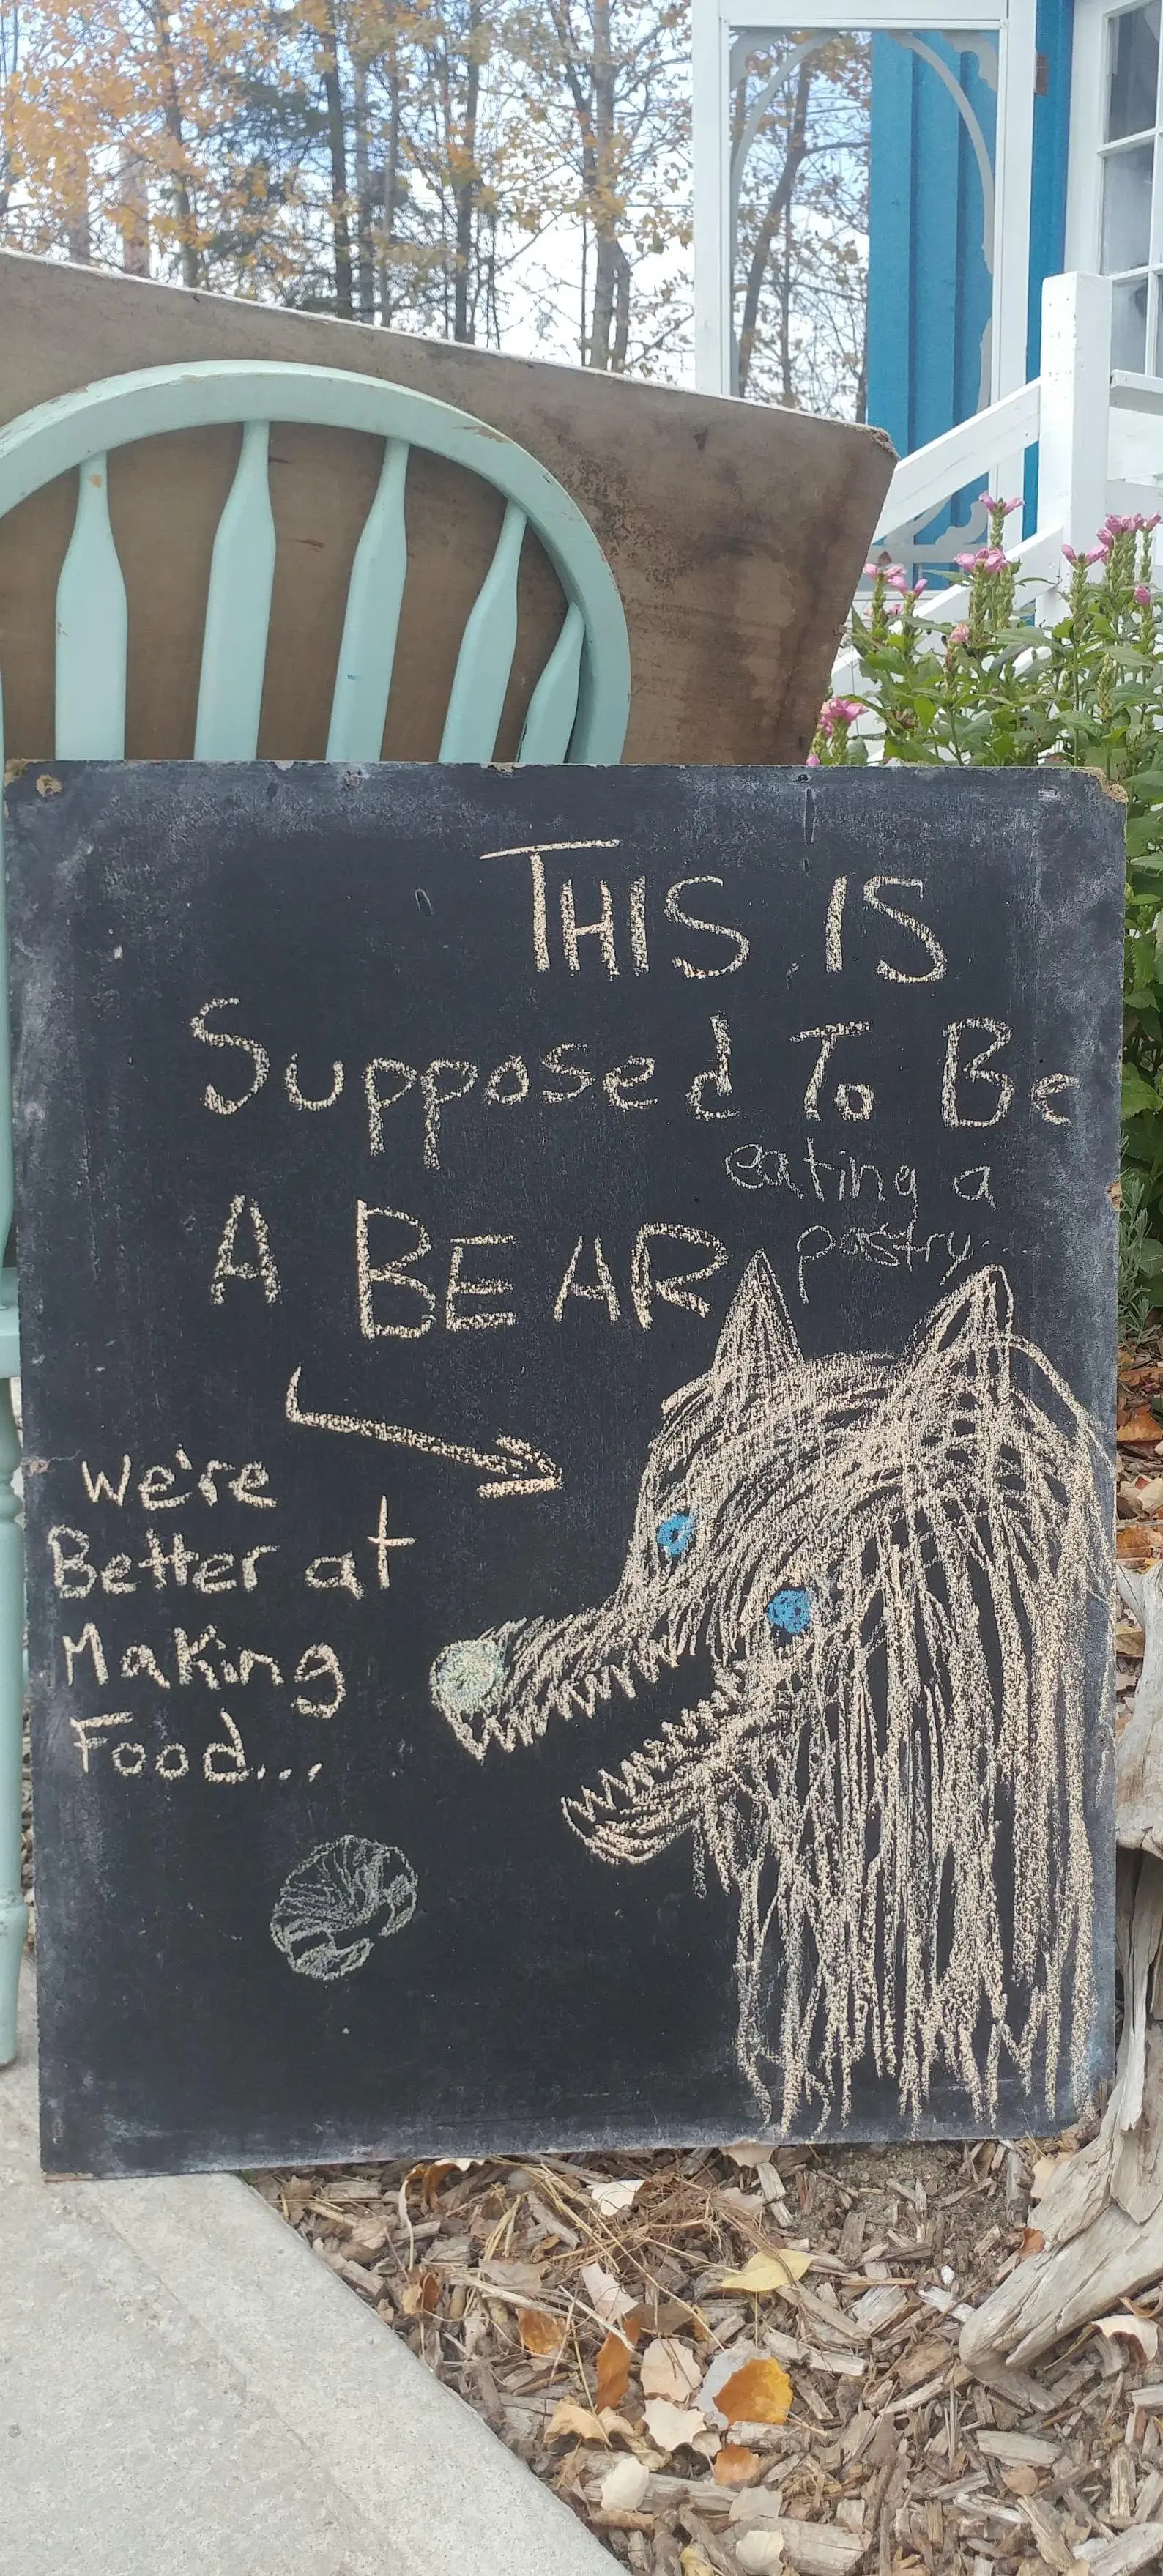 THIS IS
Supposed To Be
A BEAR
eating a
pastry...
We're
Better at
Making
Food...